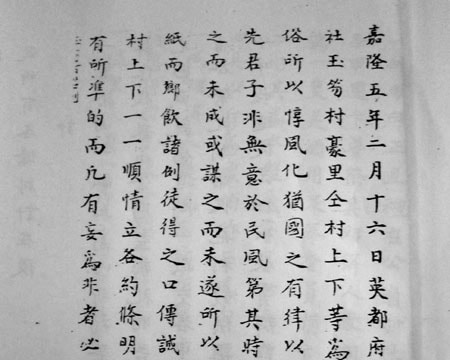 嘉隆五年二月十六日英都府
社玉笏村豪里仝村上下等爲
俗所以惇風化猶國之有律以
先君子非無意於民風第其時
之而未成或謀之而未遂所以
紙而鄉飲諸例徒得之口傳誠
村上下一一順情立各約條明
有所準的而凡有妄爲非者必